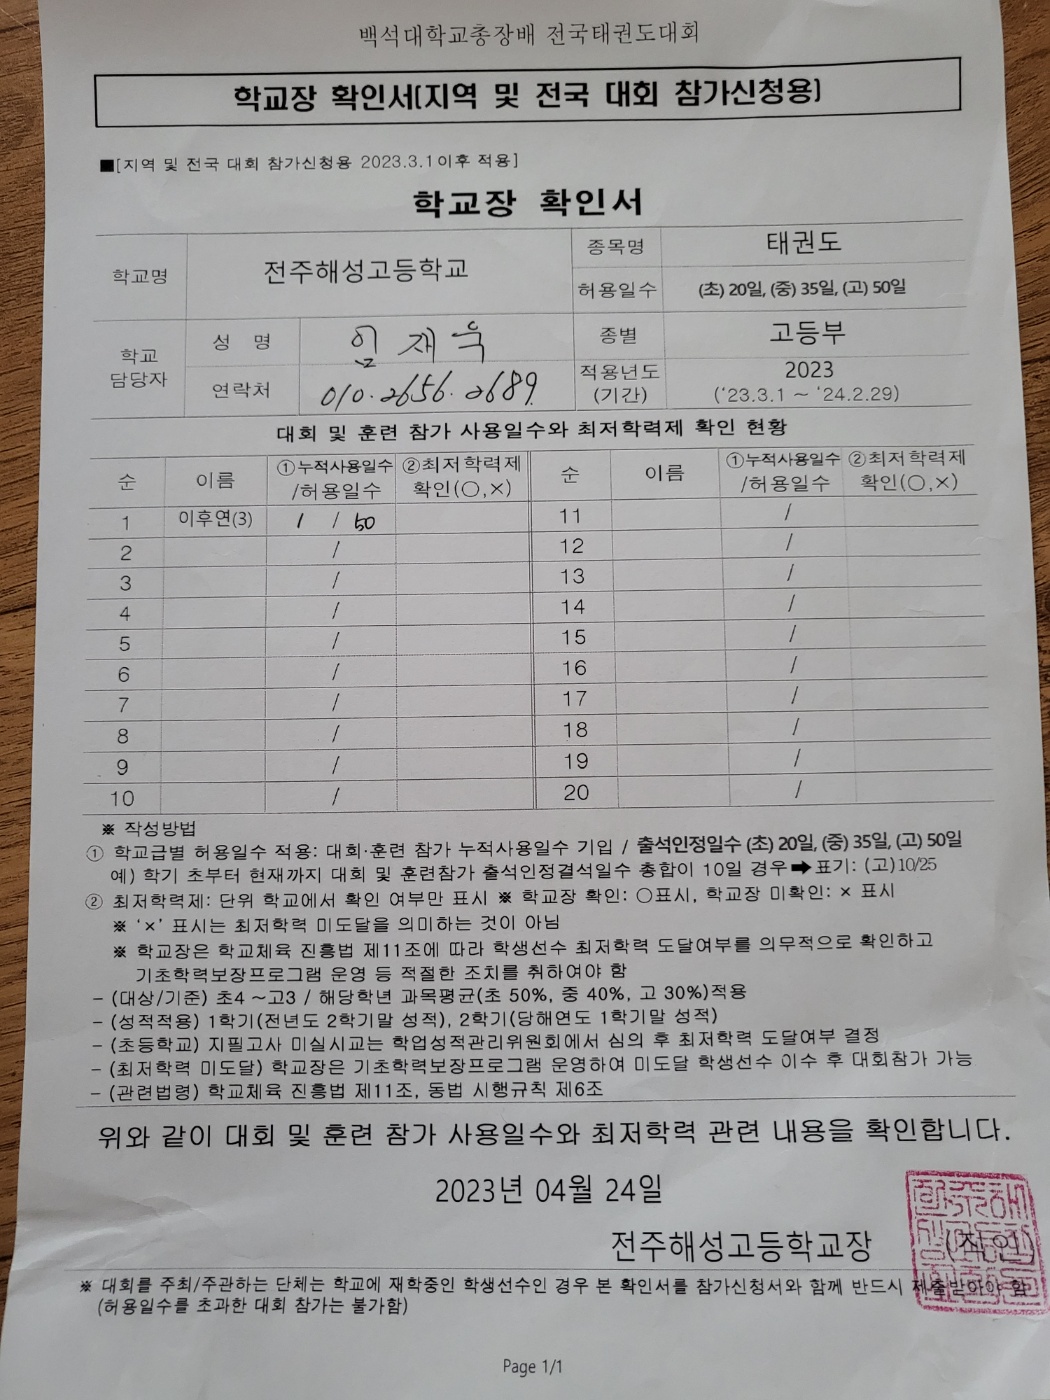 백석대학교총장배 전국태권도대회
학교장 확인서(지역 및 전국 대회 참가신청용)
■[지역 및 전국 대회 참가신청용 2023.3.1이후 적용]
학교장 확인서
학교명 전주해성고등학교 종목명 태권도
허용일수 (초) 20일, (중) 35일, (고) 50일
학교 담당자 성 명 임재욱 종별 고등부
연락처 010.2656.2689 적용년도 (기간) 2023 ('23.3.1 ~ '24.2.29)
대회 및 훈련 참가 사용일수와 최저학력제 확인 현황
순 이름 ①누적사용일수 /허용일수 ②최저학력제 확인(○,×) 순 이름 ①누적사용일수 /허용일수 ②최저학력제 확인(○,×)
1 이후연(3) 1 / 50 11 /
2 / 12 /
3 / 13 /
4 / 14 /
5 / 15 /
6 / 16 /
7 / 17 /
8 / 18 /
9 / 19 /
10 / 20 /
※ 작성방법
① 학교급별 허용일수 적용: 대회·훈련 참가 누적사용일수 기입 / 출석인정일수 (초) 20일, (중) 35일, (고) 50일
예) 학기 초부터 현재까지 대회 및 훈련참가 출석인정결석일수 총합이 10일 경우➡표기: (고)10/25
② 최저학력제: 단위 학교에서 확인 여부만 표시 ※ 학교장 확인: ○표시, 학교장 미확인: × 표시
※ '×' 표시는 최저학력 미도달을 의미하는 것이 아님
※ 학교장은 학교체육 진흥법 제11조에 따라 학생선수 최저학력 도달여부를 의무적으로 확인하고
기초학력보장프로그램 운영 등 적절한 조치를 취하여야 함
- (대상/기준) 초4 ~고3 / 해당학년 과목평균(초 50%, 중 40%, 고 30%)적용
- (성적적용) 1학기(전년도 2학기말 성적), 2학기(당해연도 1학기말 성적)
- (초등학교) 지필고사 미실시교는 학업성적관리위원회에서 심의 후 최저학력 도달여부 결정
- (최저학력 미도달) 학교장은 기초학력보장프로그램 운영하여 미도달 학생선수 이수 후 대회참가 가능
- (관련법령) 학교체육 진흥법 제11조, 동법 시행규칙 제6조
위와 같이 대회 및 훈련 참가 사용일수와 최저학력 관련 내용을 확인합니다.
2023년 04월 24일
전주해성고등학교장 (직인)
※ 대회를 주최/주관하는 단체는 학교에 재학중인 학생선수인 경우 본 확인서를 참가신청서와 함께 반드시 제출받아야 함
(허용일수를 초과한 대회 참가는 불가함)
Page 1/1